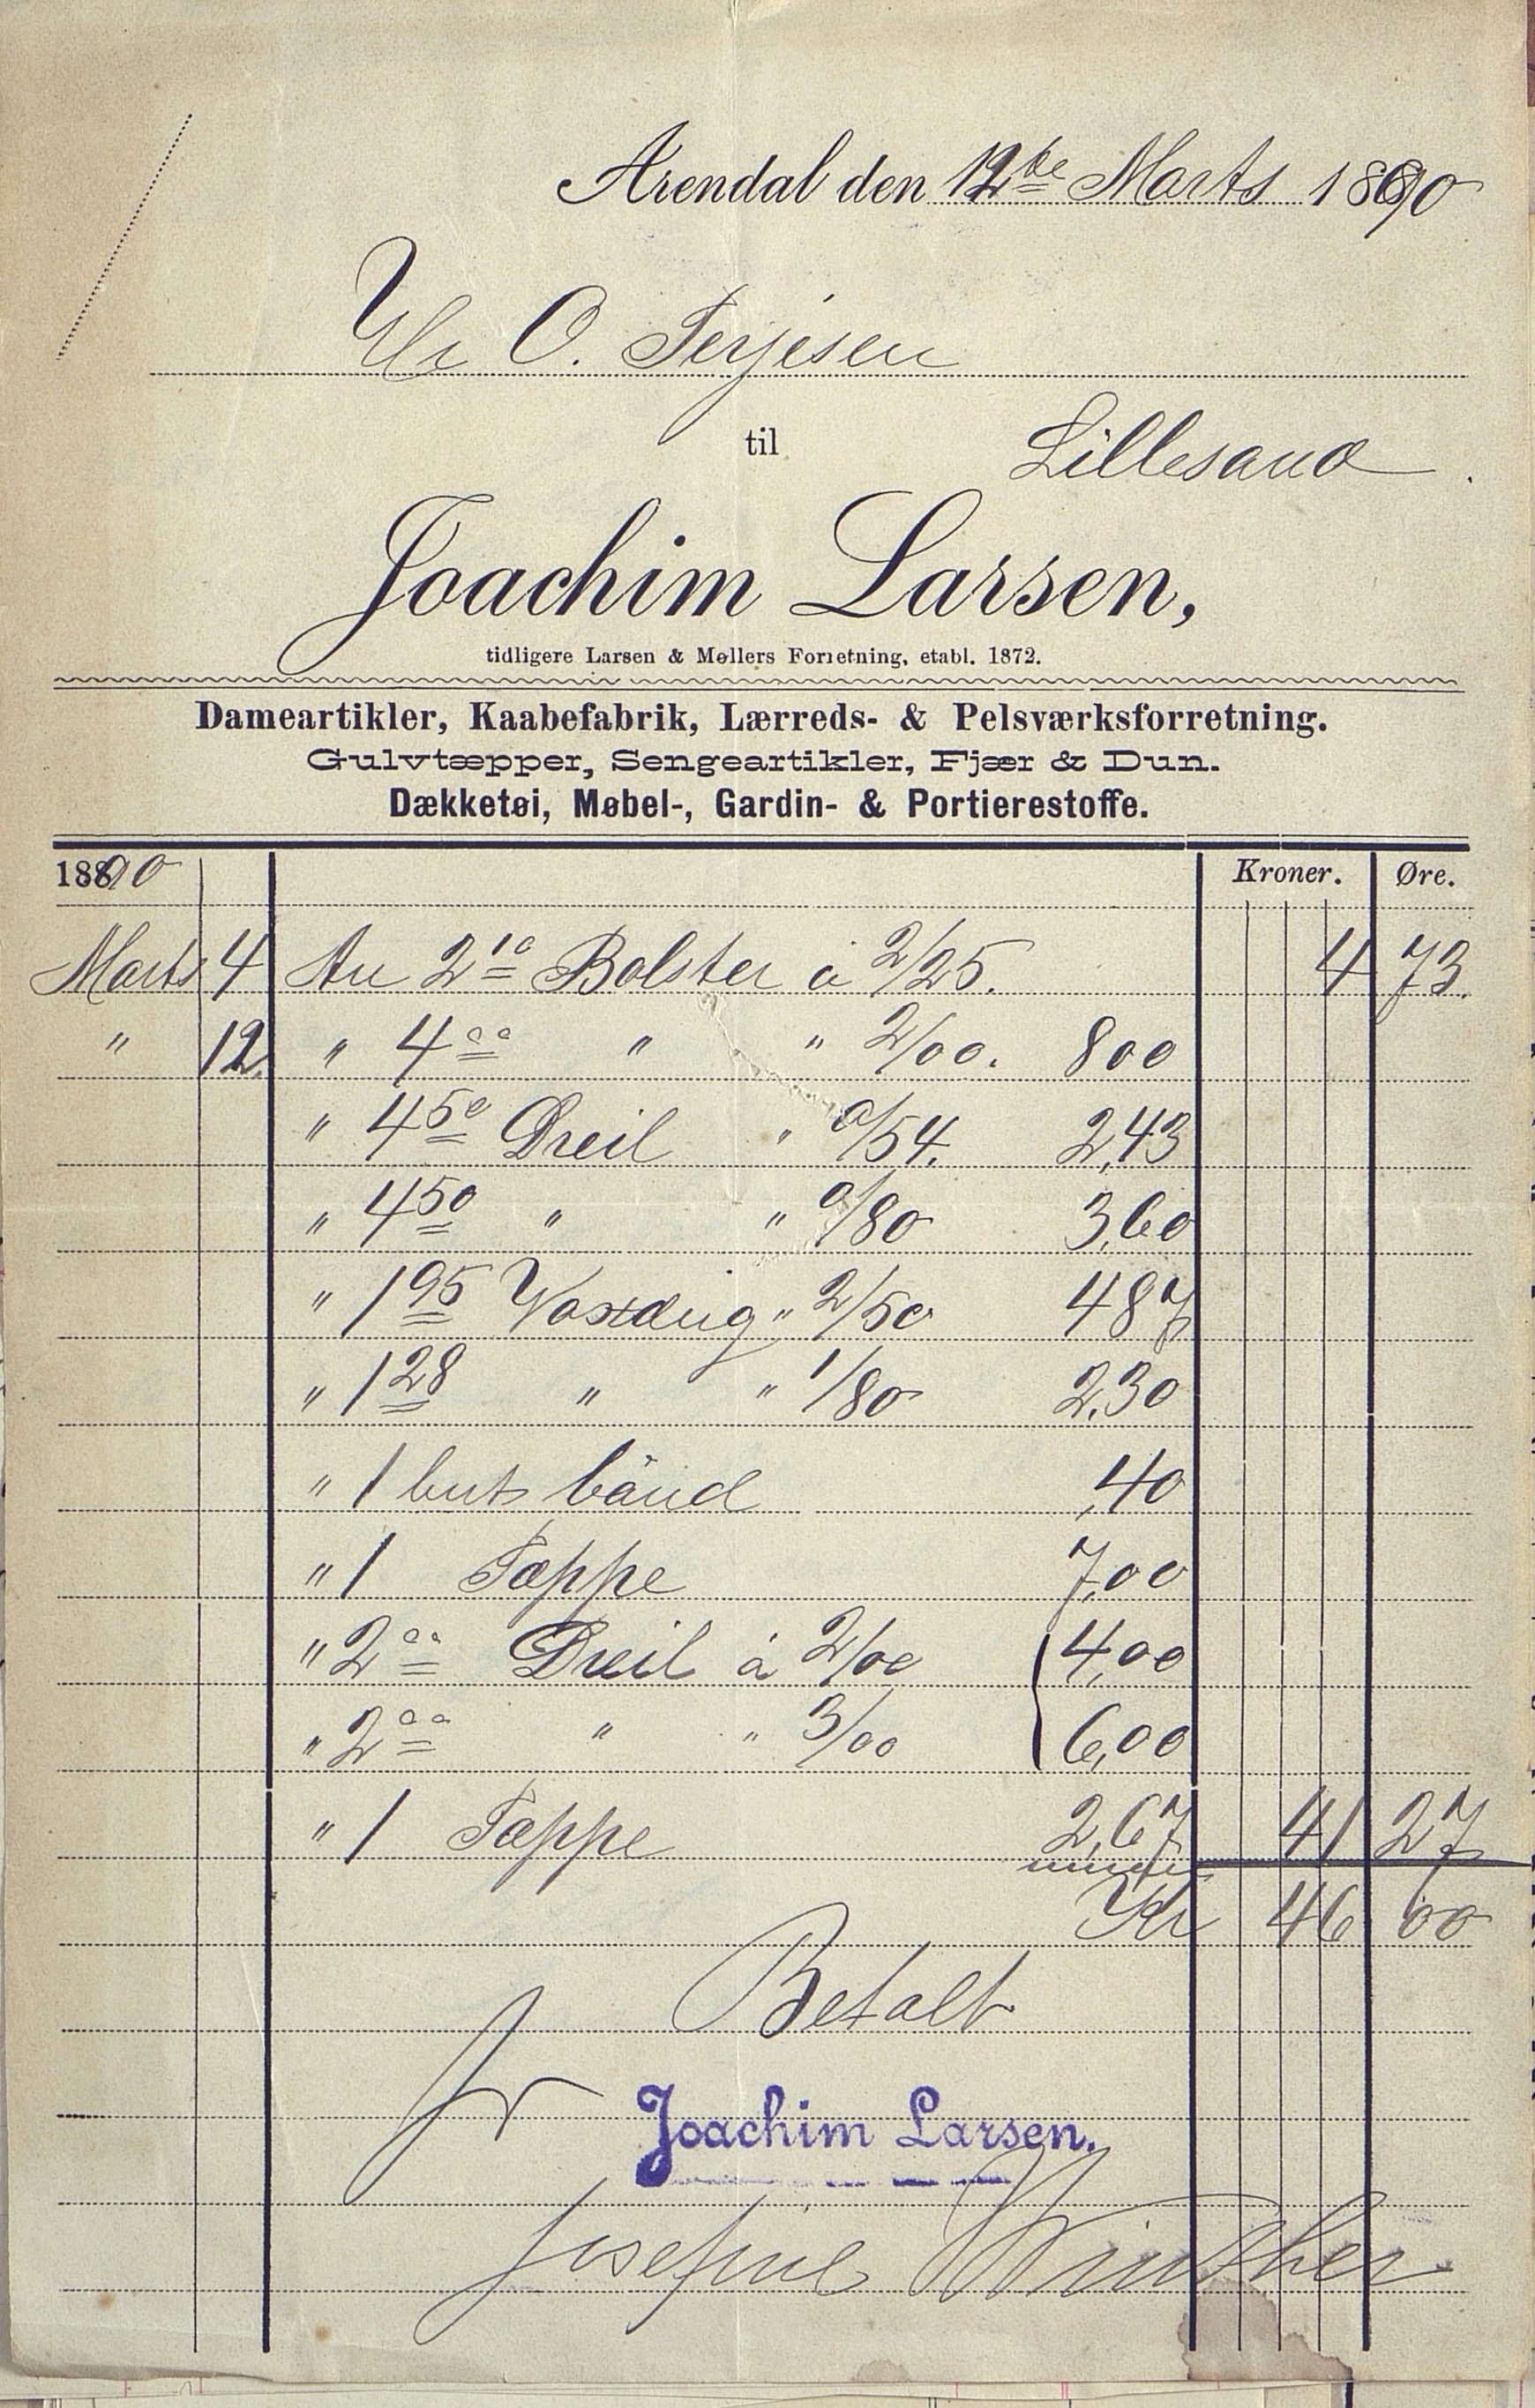 Arendal den 12te Marts 1890
Hr O. Terjesen
til
Lillesand
Joachim Larsen,
tidligere Larsen & Møllers Forretning, etabl. 1872.
Dameartikler, Kaabefabrik, Lærreds- & Pelsværksforretning.
Gulvtæpper, Sengeartikler, Fjær & Dun.
Dækketøi, Møbel-, Gardin- & Portierestoffe.
1890 Kroner. Øre.
Marts 4 An 2 10 Bolster à 2/25. 4 73.
" 12 " 4 00 " " 2/00. 800
" 4 50 Dreil " 0/54. 2,43
" 4 50 " " 0/80 3,60
" 1 95 Voxdug " 2/50 487
" 1 28 " " 1/80 2,30
" 1 bånd ,40
" 1 Tæppe 7,00
" 2 00 Dreil à 2/00 4,00
" 2 00 " " 3/00 6,00
" 1 Tæppe 2,67 41 27
Kr 46 00
Betalt
Joachim Larsen.
Josefine Winther